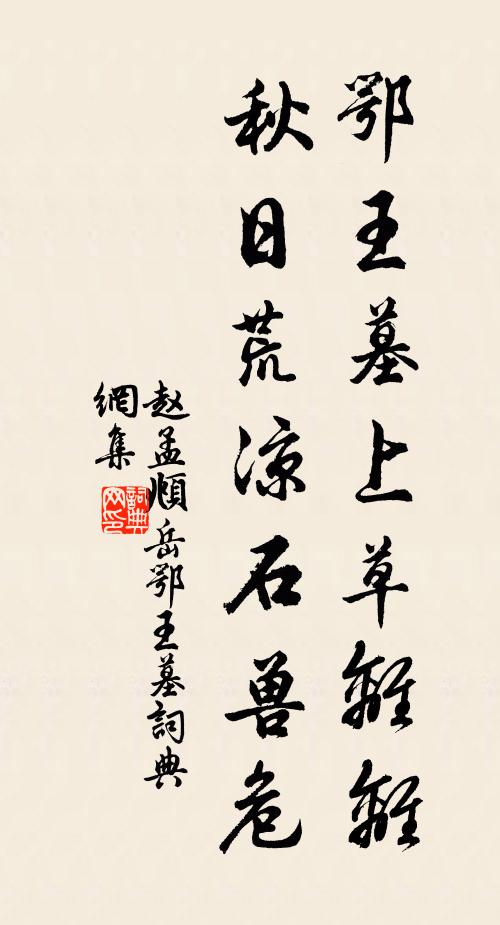 鄂王墓上草離離
秋日荒涼石兽危
赵孟頫岳鄂王墓詞典
網集
詞典
网印